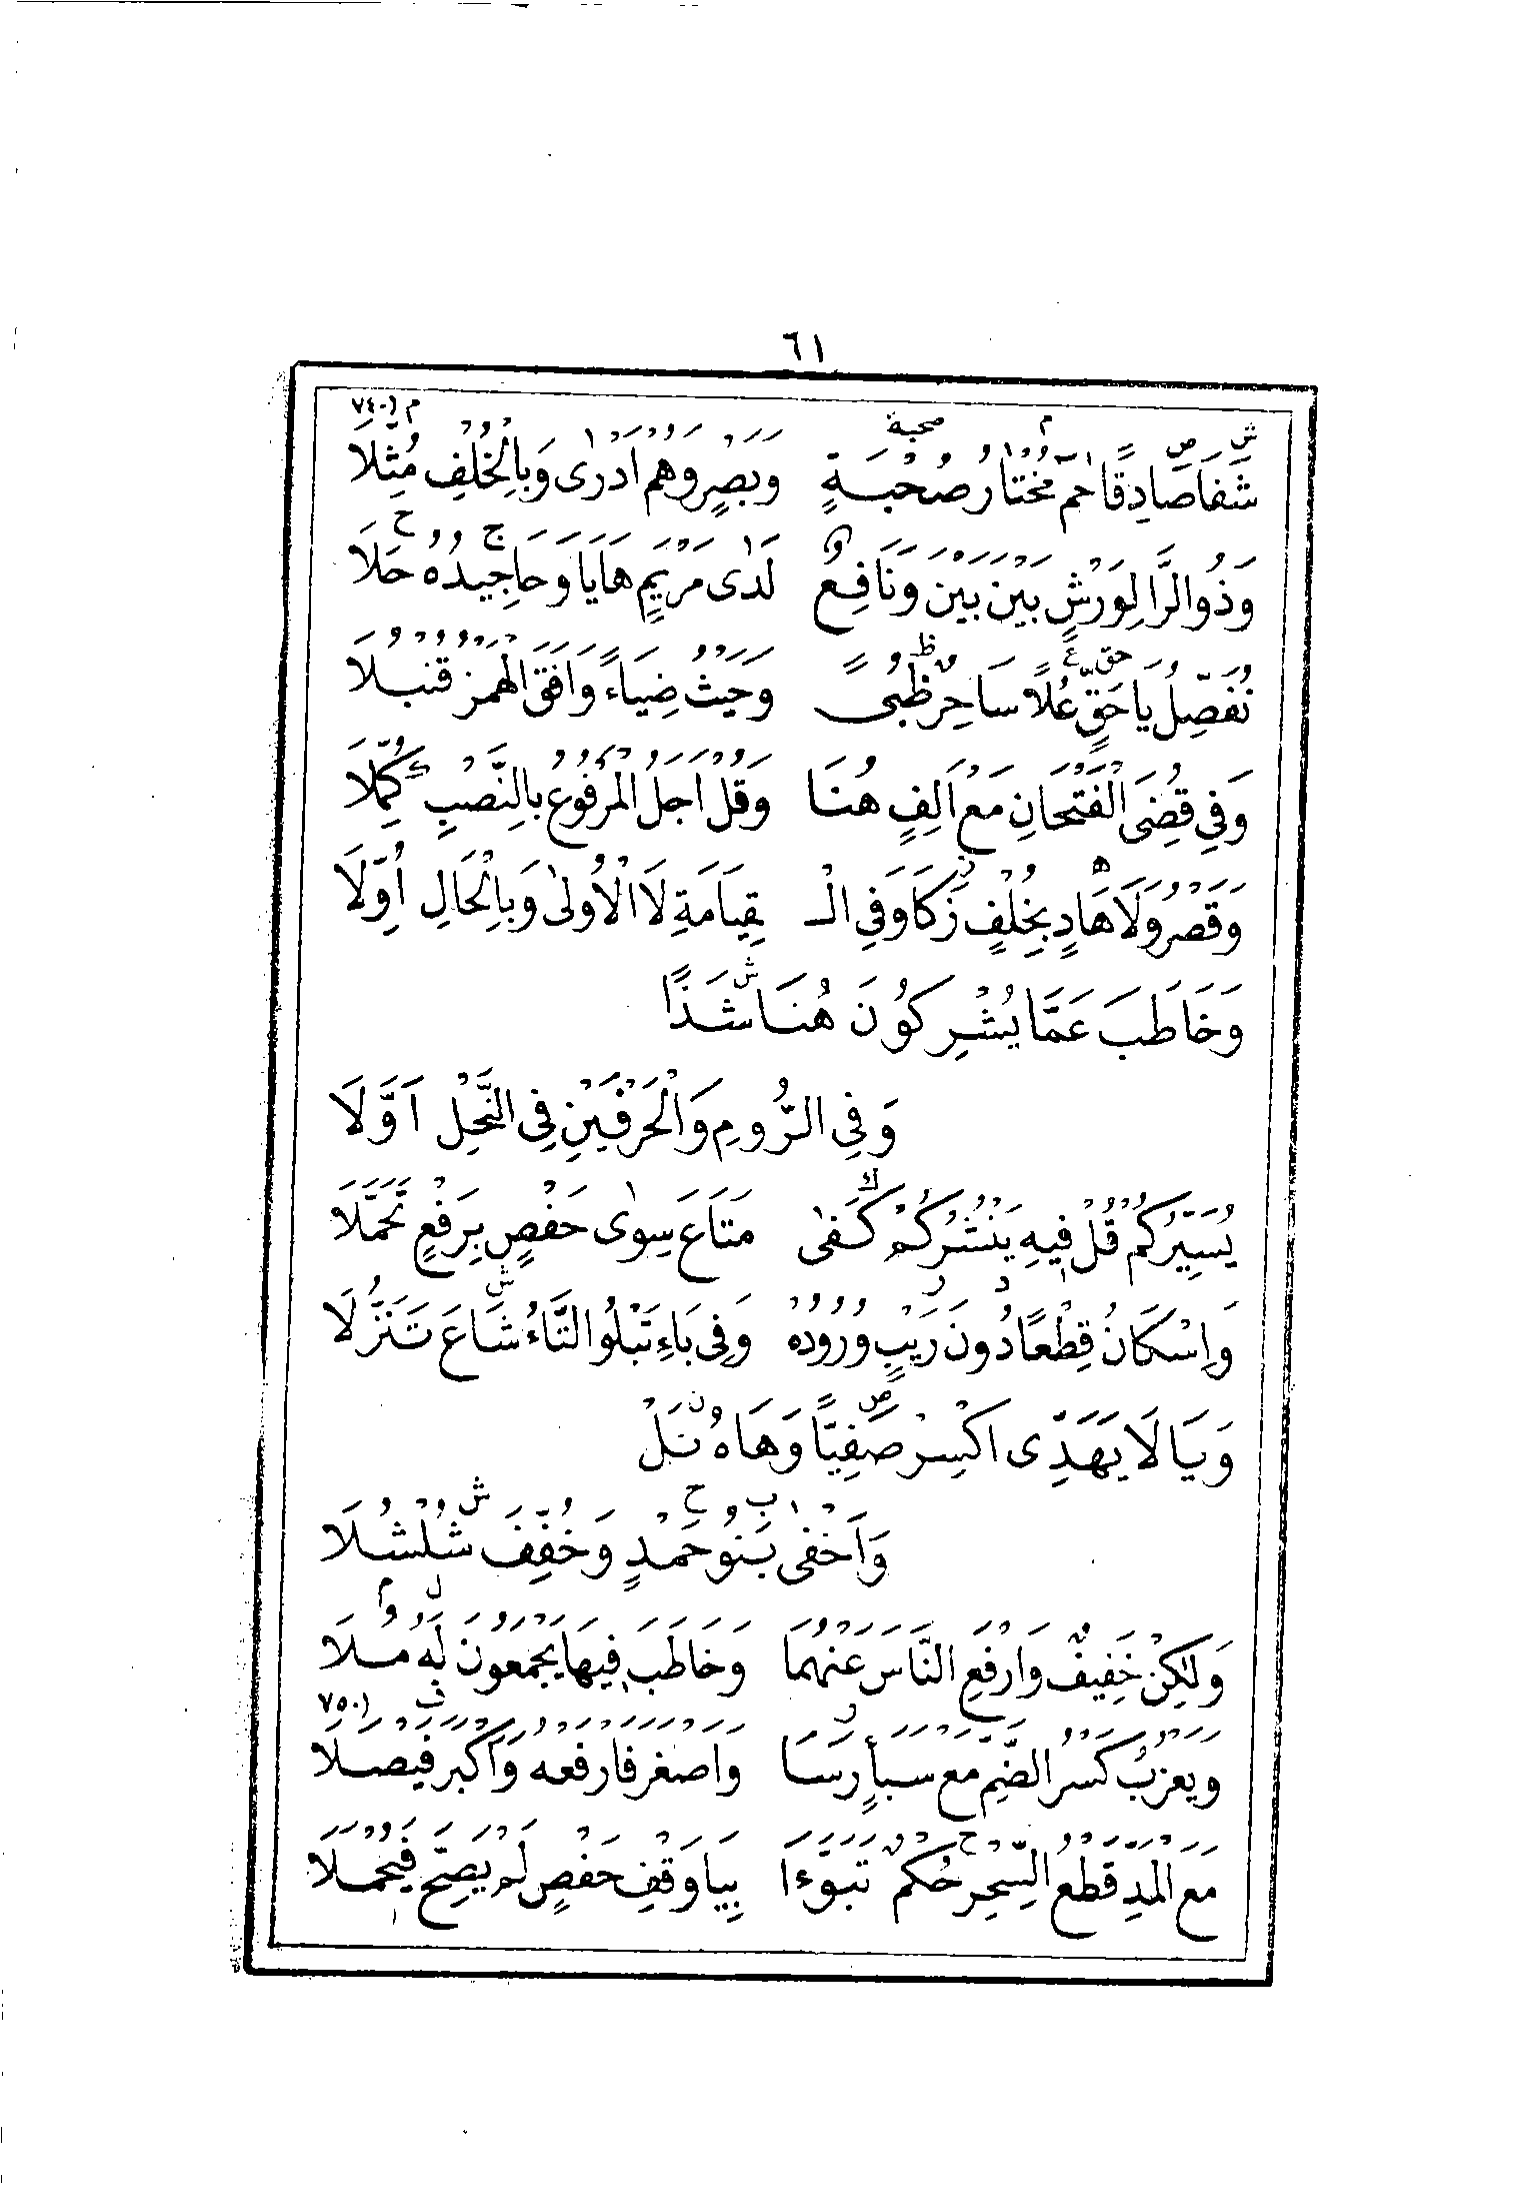 ٦١
شَفَا صَادِقًا حم مُخْتَارُ صُحْبَةٍ وَبَصْرٍ وَهُمْ أَدْرٰى وَبِالْخُلْفِ مُثِّلَا (٧٤٠
وَذُو الرَّا لِوَرْشٍ بَيْنَ بَيْنَ وَنَافِعٌ لَدٰى مَرْيَمٍ هَايَا وَحَاجِيدُهُ حَلَا
نُفَصِّلُ يَا حَقٍّ عُلًا سَاحِرٌ ظُبًى وَحَيْثُ ضِيَاءً وَافَقَ الْهَمْزُ قُنْبُلَا
وَفِي قُضِيَ الْفَتْحَانِ مَعْ أَلِفٍ هُنَا وَقُلْ أَجَلُ الْمَرْفُوعُ بِالنَّصْبِ كُمِّلَا
وَقَصْرُ وَلَا هَادٍ بِخُلْفٍ زَكَا وَفِي الْـ ـقِيَامَةِ لَا الْأُولٰى وَبِالْحَالِ أُوِّلَا
وَخَاطَبَ عَمَّا يُشْرِكُونَ هُنَا شَذًا
وَفِي الرُّومِ وَالْحَرْفَيْنِ فِي النَّحْلِ أَوَّلَا
يُسَيِّرُكُمْ قُلْ فِيهِ يَنْشُرُكُمْ كَفٰى مَتَاعَ سِوٰى حَفْصٍ بِرَفْعٍ تَحَمَّلَا
وَإِسْكَانُ قِطْعًا دُونَ رَيْبٍ وُرُودُهُ وَفِي بَاءِ تَبْلُو التَّاءُ شَاعَ تَنَزُّلَا
وَيَا لَا يَهَدِّي اكْسِرْ صَفِيًّا وَهَاهُ نَلْ
وَأَخْفٰى بَنُو حَمْدٍ وَخُفِّفَ شُلْشُلَا
وَلٰكِنْ خَفِيفٌ وَارْفَعِ النَّاسَ عَنْهُمَا وَخَاطَبَ فِيهَا يَجْمَعُونَ لَهُ مُلَا
وَيَعْزُبُ كَسْرُ الضَّمِّ مَعْ سَبَإٍ رَسَا وَأَصْغَرَ فَارْفَعْهُ وَأَكْبَرَ فَيْصَلَا (٧٥٠
مَعَ الْمَدِّ قَطْعُ السِّحْرِ حُكْمٌ تَبَوَّءَا بِيَا وَقْفِ حَفْصٍ لَمْ يَصِحَّ فَيُحْمَلَا